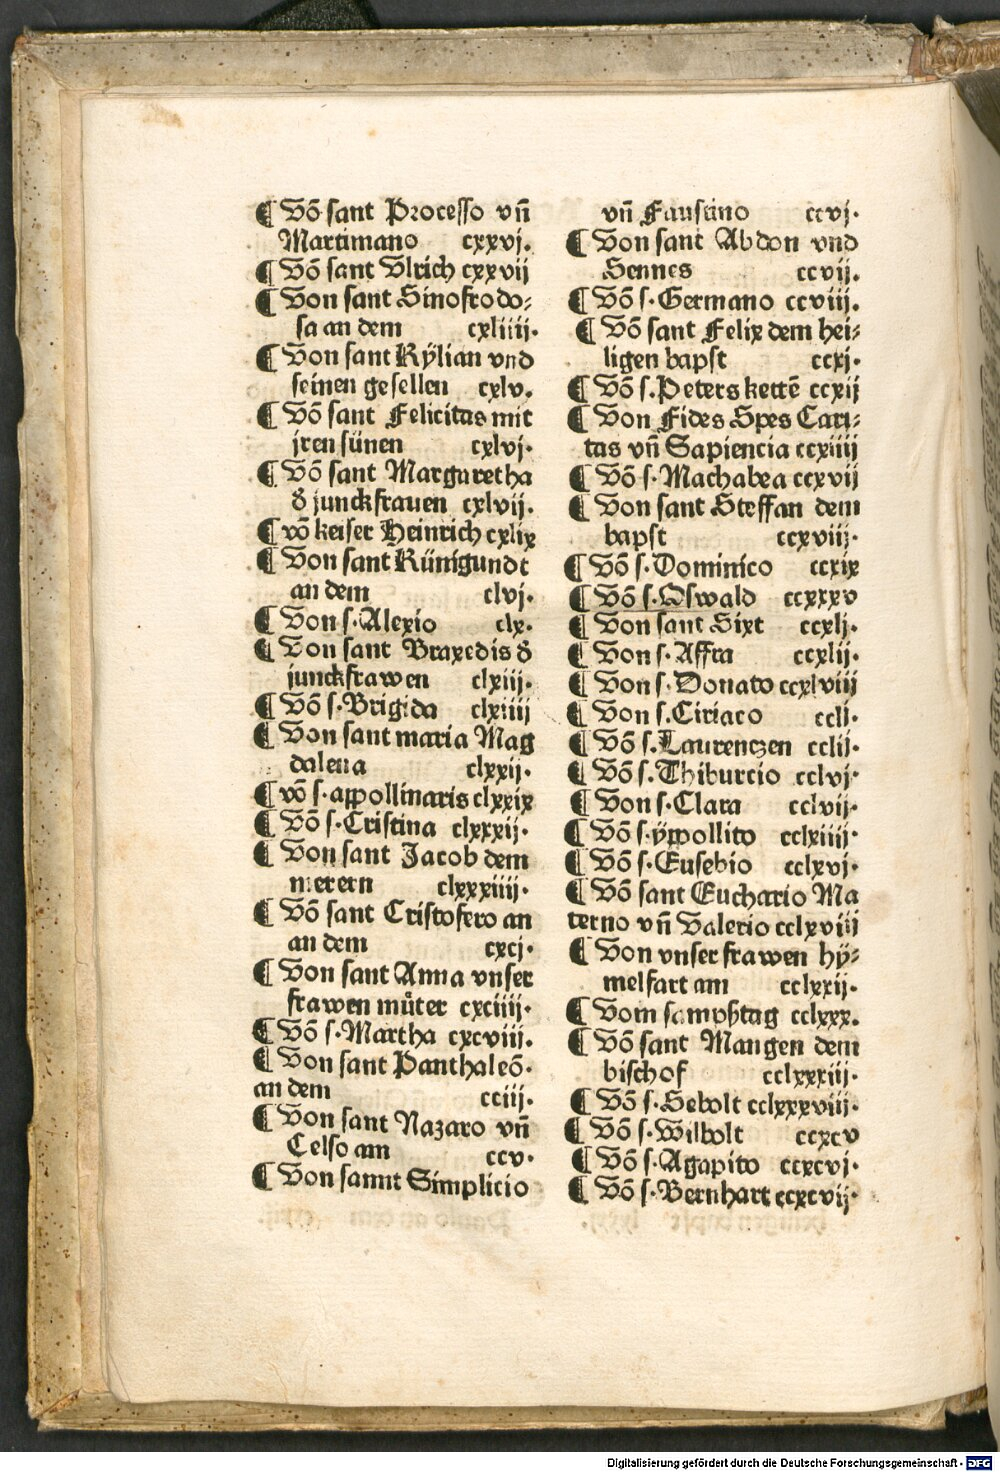 ¶ Võ sant Processo vñ
Martimano cxxvj.
¶ Võ sant Vlrich cxxvij
¶ Von sant Sinofrodo⸗
sa an dem cxliiij.
¶ Von sant Kÿlian vnd
seinen gesellen cxlv.
¶ Võ sant Felicitas mit
jren sünen cxlvj.
¶ Võ sant Margaretha
d̕ junckfrauen cxlvij.
¶ võ keiser Heinrich cxlix
¶ Von sant Künigundt
an dem clvj.
¶ Von s. Alexio clx.
¶ Von sant Braxedis d̕
junckfrawen clxiij.
¶ Võ s. Brigida clxiiij
¶ Von sant maria Mag
dalena clxxij.
¶ võ s. appollinaris clxxix
¶ Võ s. Cristina clxxxij.
¶ Von sant Jacob dem
merern clxxxiiij.
¶ Võ sant Cristofero an
an dem cxcj.
¶ Von sant Anna vnser
frawen můter cxciiij.
¶ Võ s. Martha cxcviij.
¶ Von sant Panthaleõ.
an dem cciij.
¶ Von sant Nazaro vñ
Celso am ccv.
¶ Von sannt Simplicio
vñ Faustino ccvj.
¶ Von sant Abdon vnd
Sennes ccvij.
¶ Võ s. Germano ccviij.
¶ Võ sant Felix dem hei⸗
ligen bapst ccxj.
¶ Võ s. Peters kettẽ ccxij
¶ Von Fides Spes Cari⸗
tas vñ Sapiencia ccxiiij
¶ Võ s. Machabea ccxvij
¶ Von sant Steffan dem
bapst ccxviij.
¶ Võ s. Dominico ccxix
¶ Võ s. Oswald ccxxxv
¶ Von sant Sixt ccxlj.
¶ Von s. Affra ccxlij.
¶ Von s. Donato ccxlviij
¶ Von s. Ciriaco cclj.
¶ Võ s. Laurenczen cclij.
¶ Võ s. Thiburcio cclvj.
¶ Von s. Clara cclvij.
¶ Võ s. ÿppollito cclxiiij.
¶ Võ s. Eusebio cclxvj.
¶ Võ sant Euchario Ma
terno vñ Valerio cclxviij
¶ Von vnser frawen hÿ⸗
melfart am cclxxij.
¶ Vom sampßtag cclxxx.
¶ Võ sant Mangen dem
bischof cclxxxiij.
¶ Võ s. Sebolt cclxxxviij.
¶ Võ s. Wilbolt ccxcv
¶ Võ s. Agapito ccxcvj.
¶ Võ s. Bernhart ccxcvij.
Digitalisierung gefördert durch die Deutsche Forschungsgemeinschaft - DFG